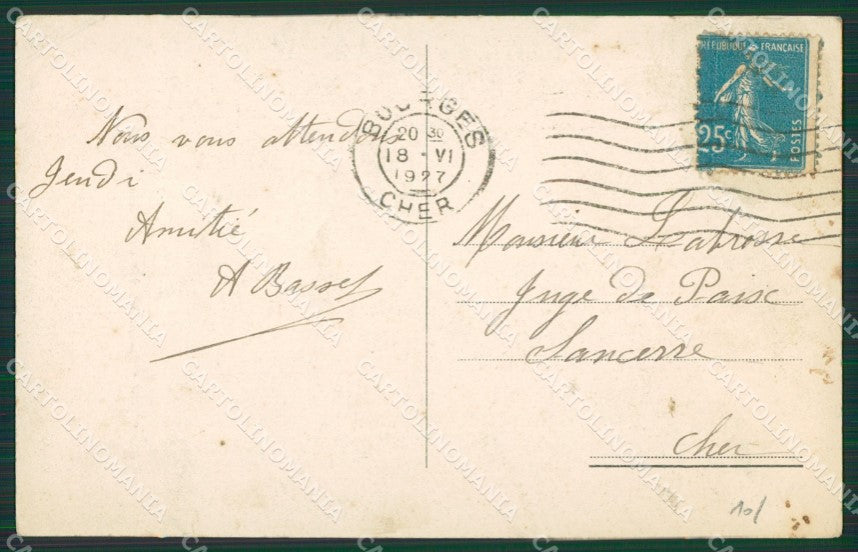 Nous vous attendons
Jeudi
Amitié
A Basset
BOURGES
20 30
18 - VI
1927
CHER
RÉPUBLIQUE FRANÇAISE
25c
POSTES
Monsieur Labrosse
Juge de Paix
Sancerre
Cher
10/
CARTOLINOMANIA